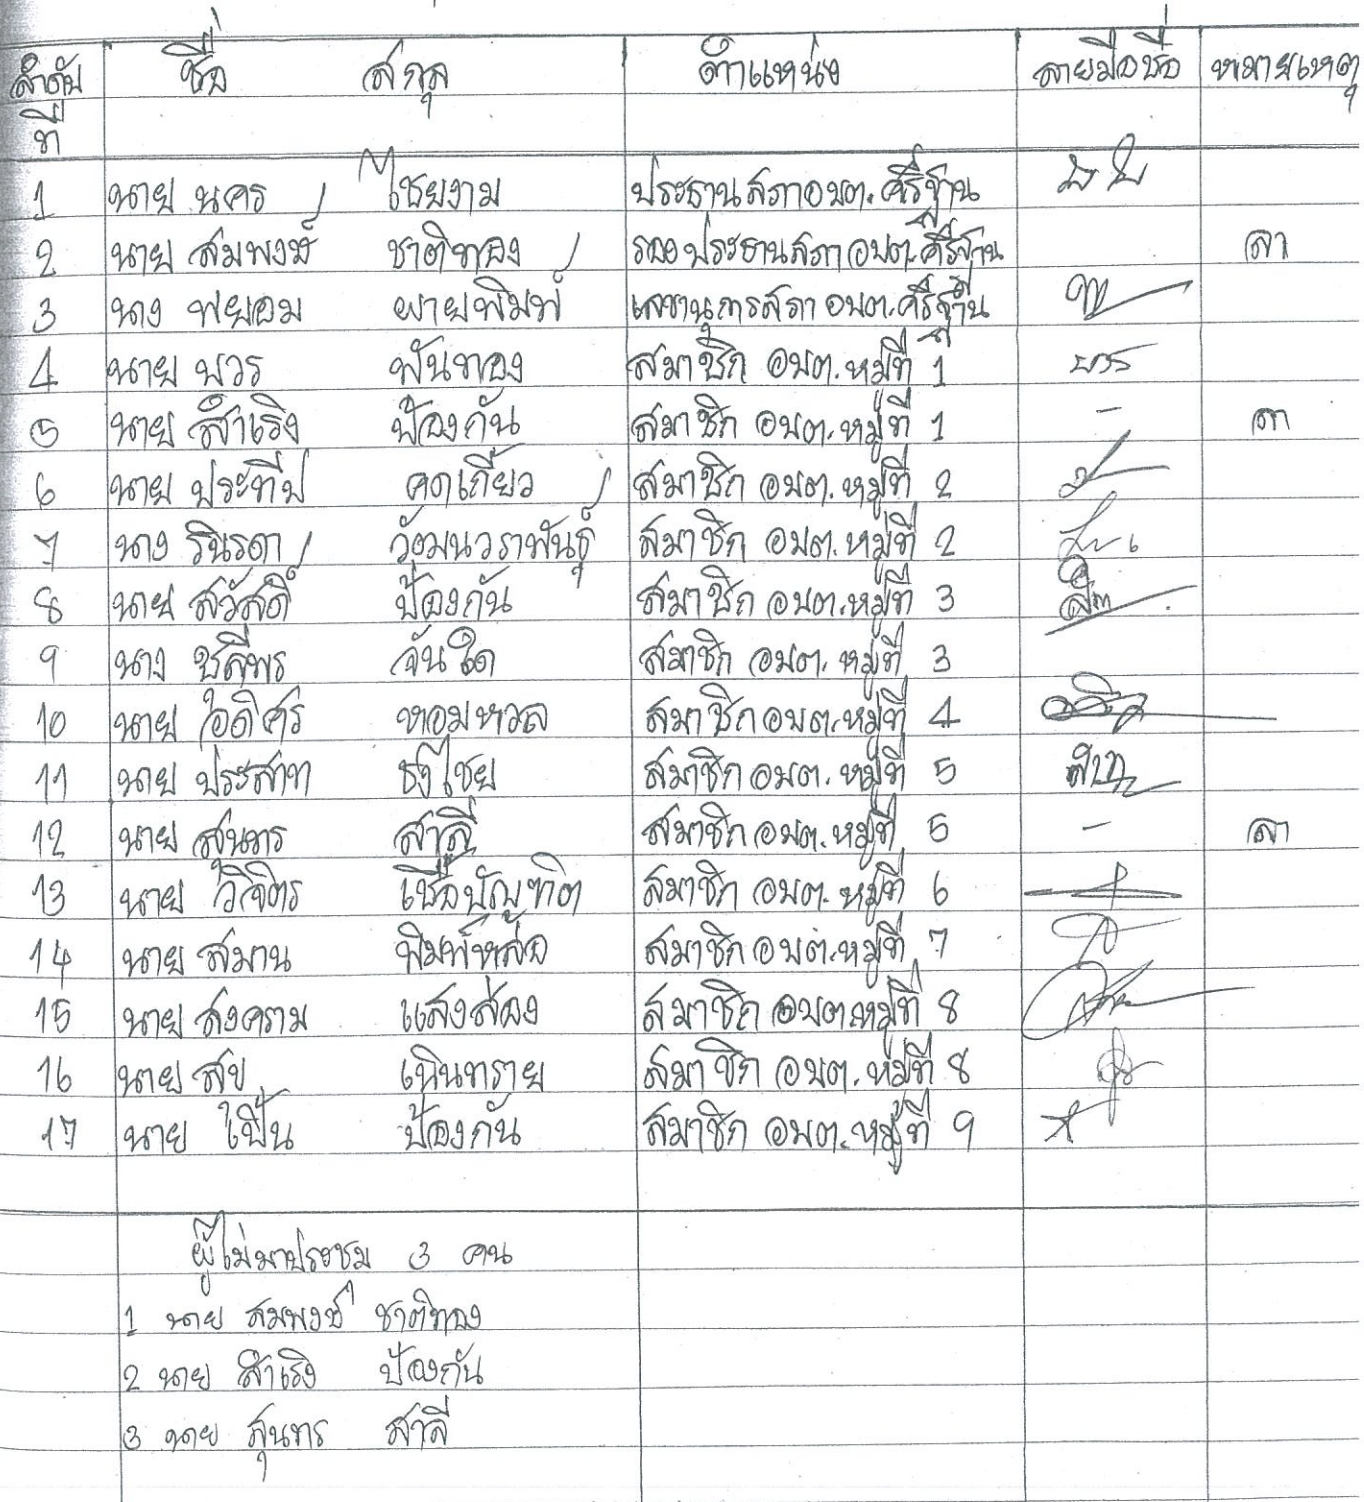 ลำดับที่ ชื่อ สกุล ตำแหน่ง ลายมือชื่อ หมายเหตุ
1 นาย นคร ไชยงาม ประธานสภาอบต.คีรีฐาน
2 นาย สมพงษ์ ชาติทอง รองประธานสภา อบต.คีรีฐาน ลา
3 นาง พยอม ผายพิมพ์ เลขานุการสภา อบต.คีรีฐาน
4 นาย บวร พันทอง สมาชิก อบต.หมู่ที่ 1 บวร
5 นาย สำเริง ป้องกัน สมาชิก อบต.หมู่ที่ 1 - ลา
6 นาย ประทีป คดเกี้ยว สมาชิก อบต.หมู่ที่ 2
7 นาง รินรดา สมาชิก อบต.หมู่ที่ 2
8 นาย สวัสดิ์ ป้องกัน สมาชิก อบต.หมู่ที่ 3
9 นาง ชลีพร จันใด สมาชิก อบต.หมู่ที่ 3
10 นาย อดิศร หอมหวล สมาชิก อบต.หมู่ที่ 4
11 นาย ประสาท ธงไชย สมาชิก อบต.หมู่ที่ 5
12 นาย สุนทร สาลี สมาชิก อบต.หมู่ที่ 5 - ลา
13 นาย วิจิตร เชื้อบัญฑิต สมาชิก อบต.หมู่ที่ 6
14 นาย สมาน พิมพ์หล่อ สมาชิก อบต.หมู่ที่ 7
15 นาย สงคราม แสงส่อง สมาชิก อบต.หมู่ที่ 8
16 นาย สุข เนินทราย สมาชิก อบต.หมู่ที่ 8
17 นาย เปิ้น ป้องกัน สมาชิก อบต.หมู่ที่ 9
ผู้ไม่มาประชุม 3 คน
1 นาย สมพงษ์ ชาติทอง
2 นาย สำเริง ป้องกัน
3 นาย สุนทร สาลี